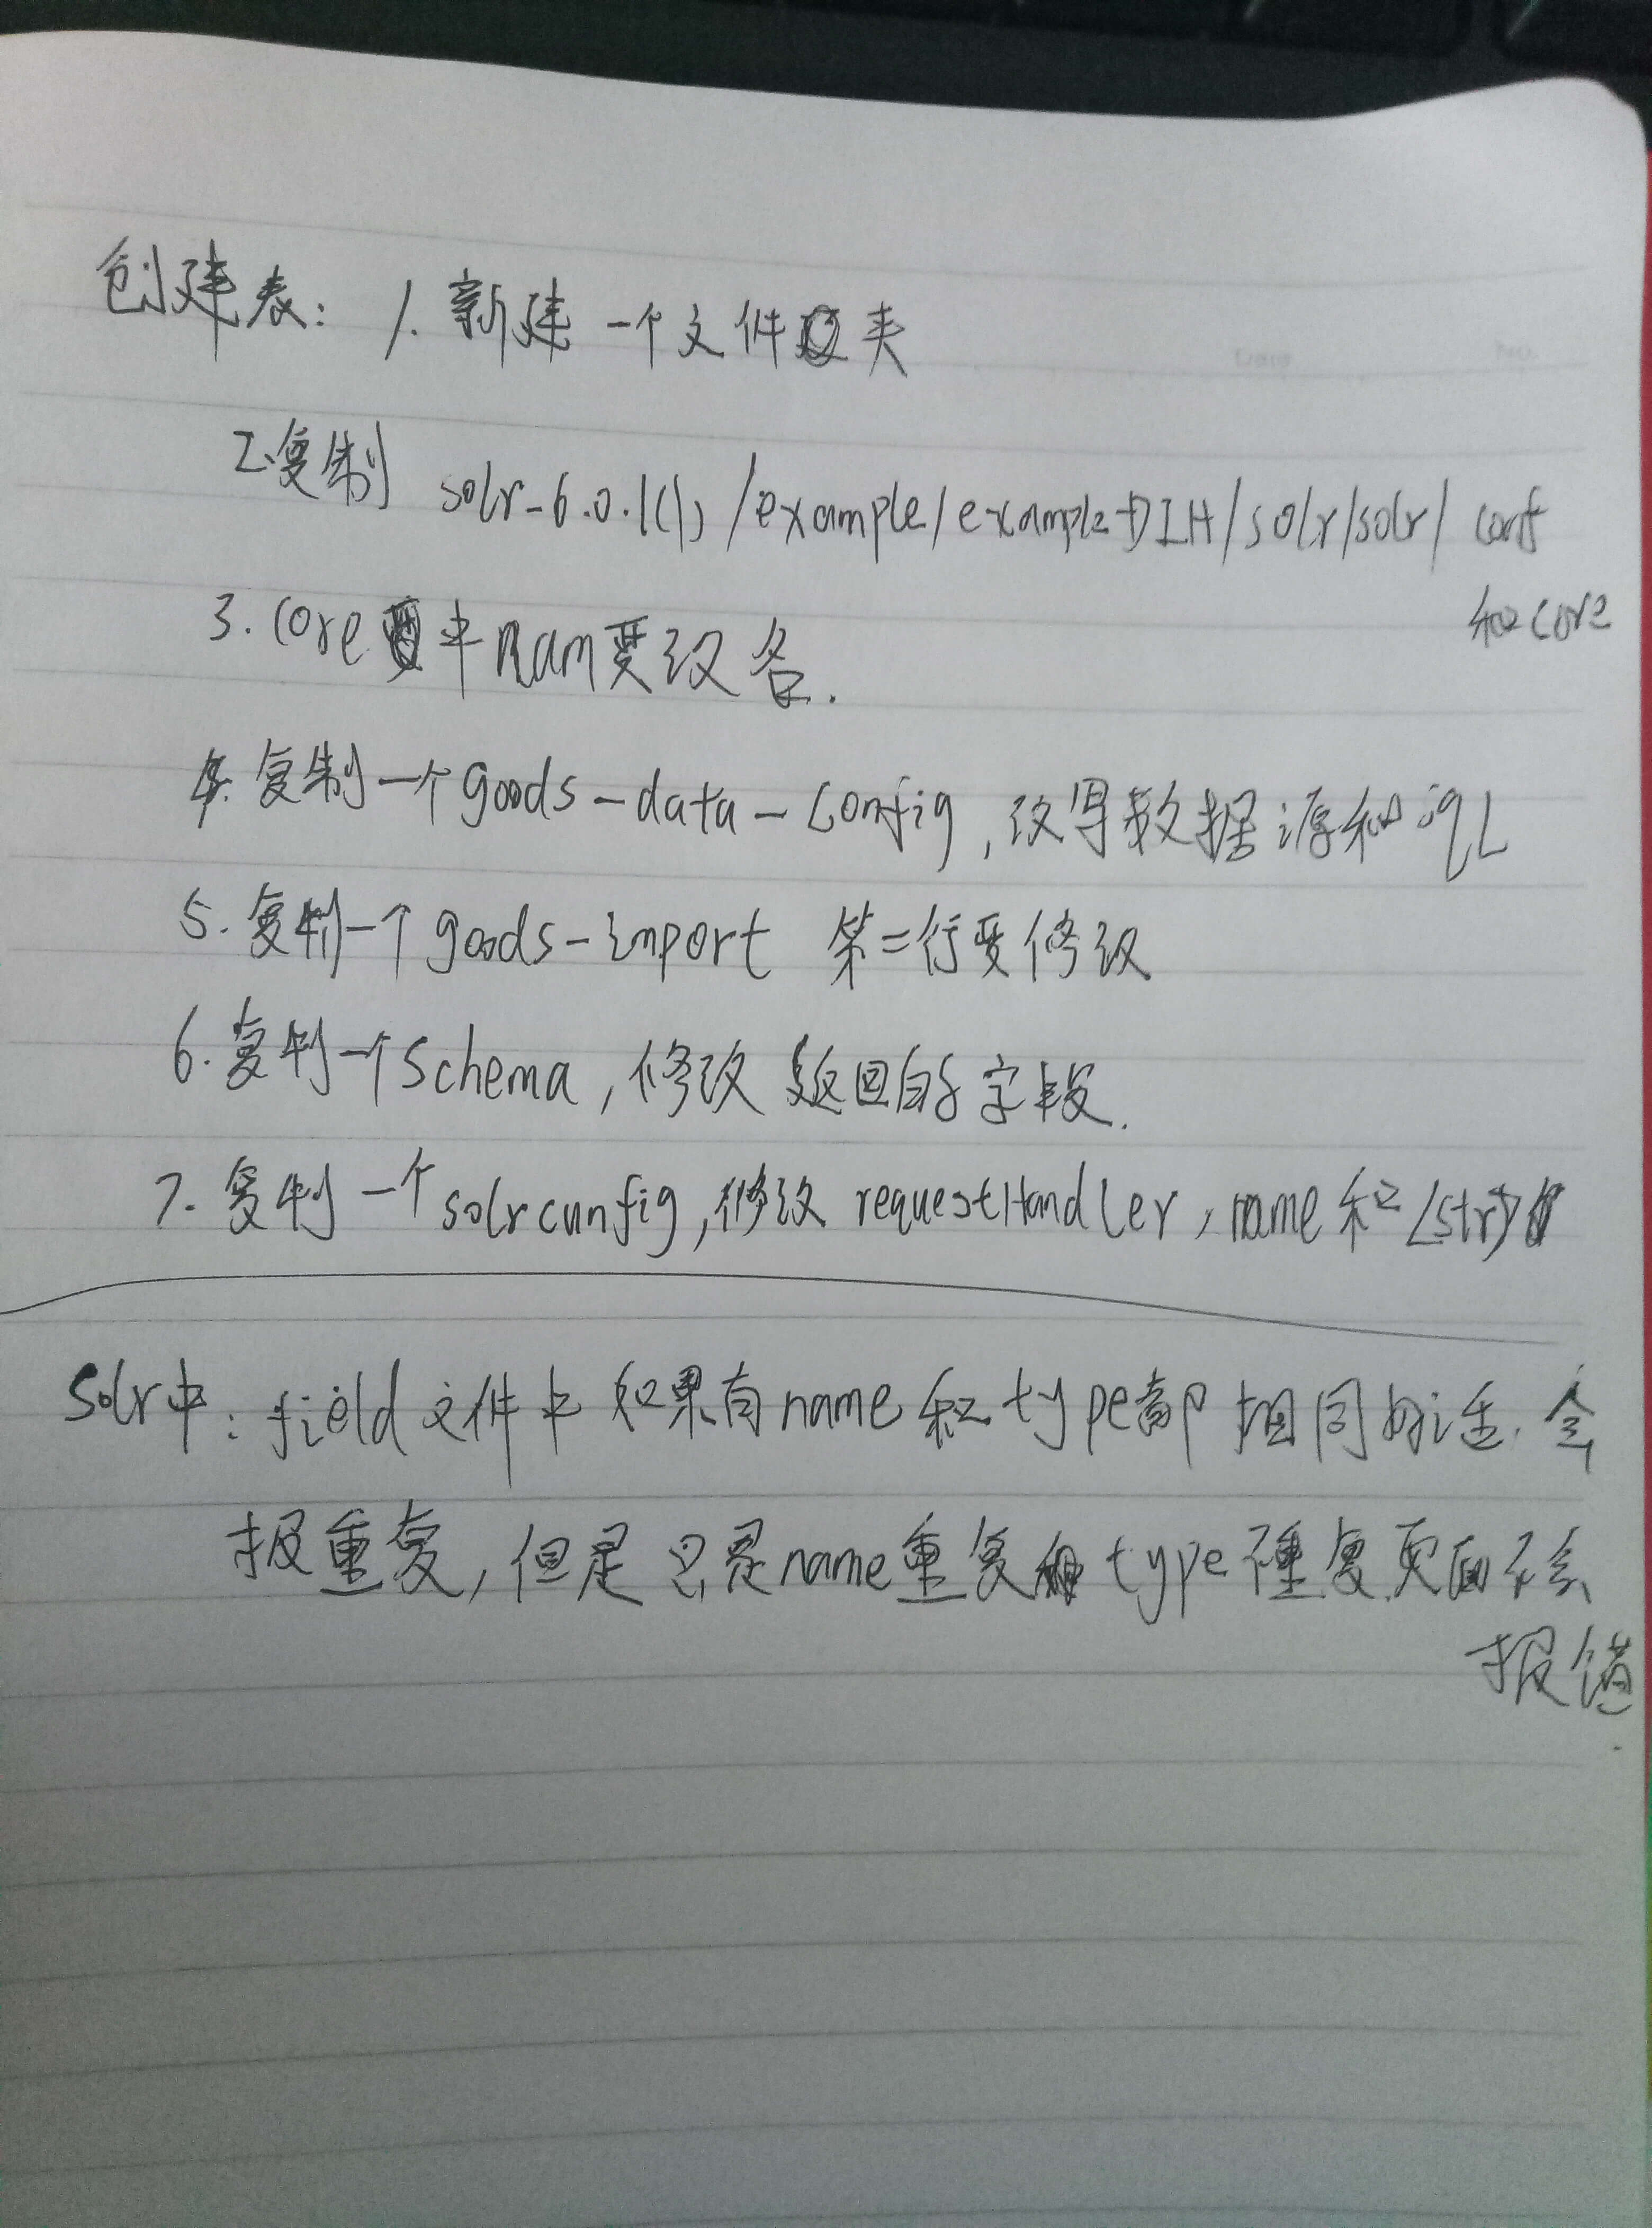 创建表: 1. 新建一个文件夹
2.复制 solr-6.0.1(1)/example/example-DIH/solr/solr/conf
和core
3. core中nam要改名.
4. 复制一个goods-data-config,改写数据源和sql
5. 复制一个goods-import 第二行要修改
6. 复制一个schema,修改返回的字段.
7. 复制一个solrcunfig,修改 requestHandler, name和<str>
solr中: field文件中如果有name和type都相同的话.会
报重复,但是只是name重复 type不重复,页面不会
报错.